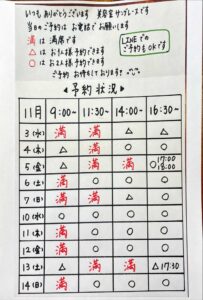 いつも ありがとうございます 美容室サンプレーズです
当日のご予約は お電話でお願いします
満 は 満席です
△ は お1人様予約できます
○ は お2人様予約できます
ご予約 お待ちしております
LINEでの
ご予約もOKです
◀ 予約状況 ▶
11月 9:00~ 11:30~ 14:00~ 16:30~
3(水) 満 満 △ △
4(木) △ 満 ○ ○
5(金) △ 満 満 ○17:00
18:00
6(土) 満 ○ ○ ○
7(日) 満 満 △ △
10(水) ○ ○ ○ ○
11(木) 満 ○ ○ ○
12(金) 満 ○ ○ ○
13(土) △ 満 満 △17:30
14(日) 満 ○ ○ ○